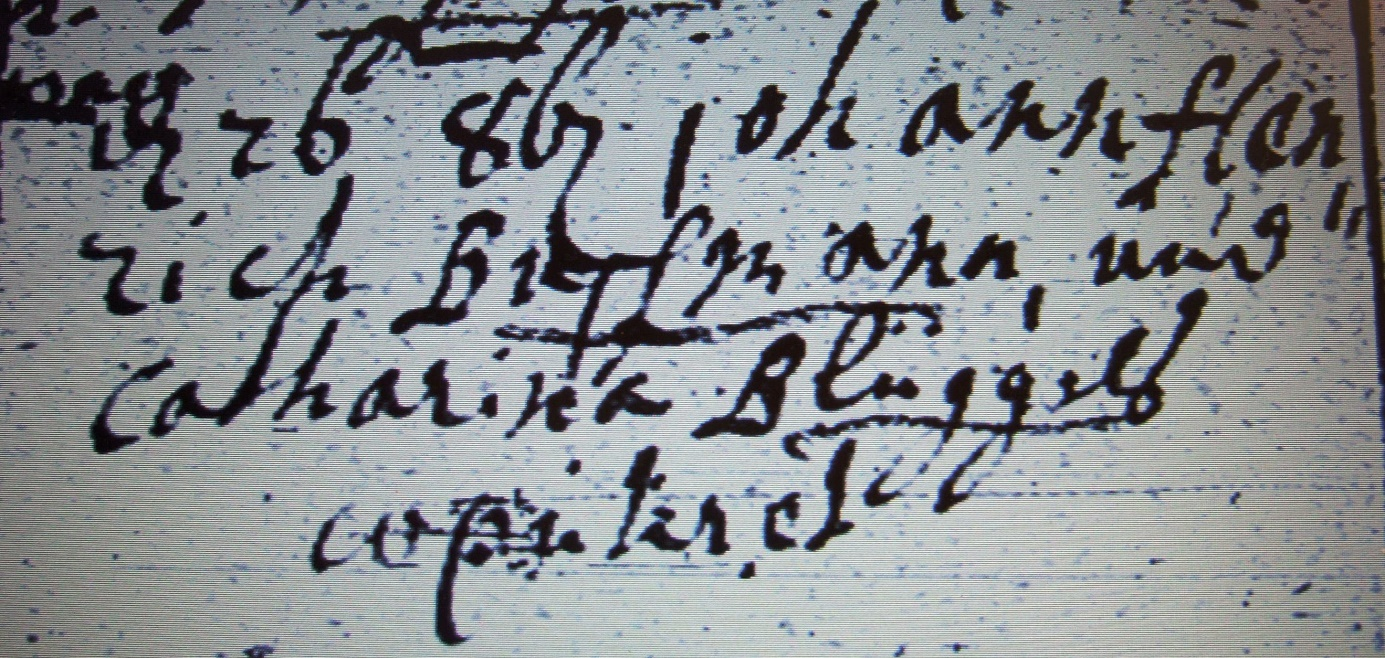 26 8br johann Hen
rich mann, und
Catharina Bluggels
copulirt